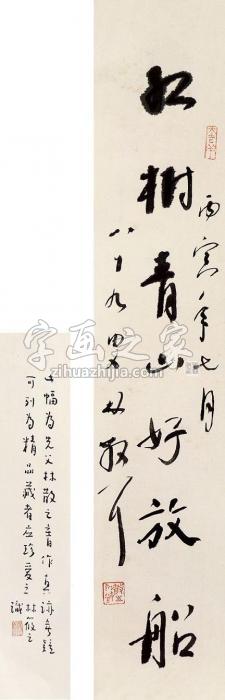 红树青山好放船
丙寅年七月
八十九叟林散耳
此幅为先父林散之書自作真迹無疑
可列为精品藏者应珍爱之 林筱之
識
字画之家
zihuazhijia.com